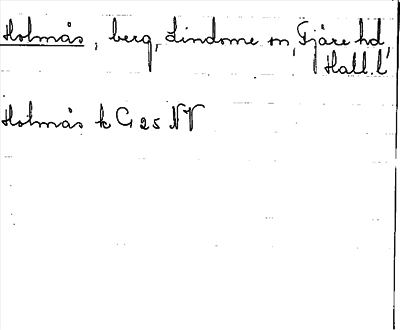 Holmås, berg, Lindome sn, Fjäre hd,
Hall. l.
Holmås k G 25 NV